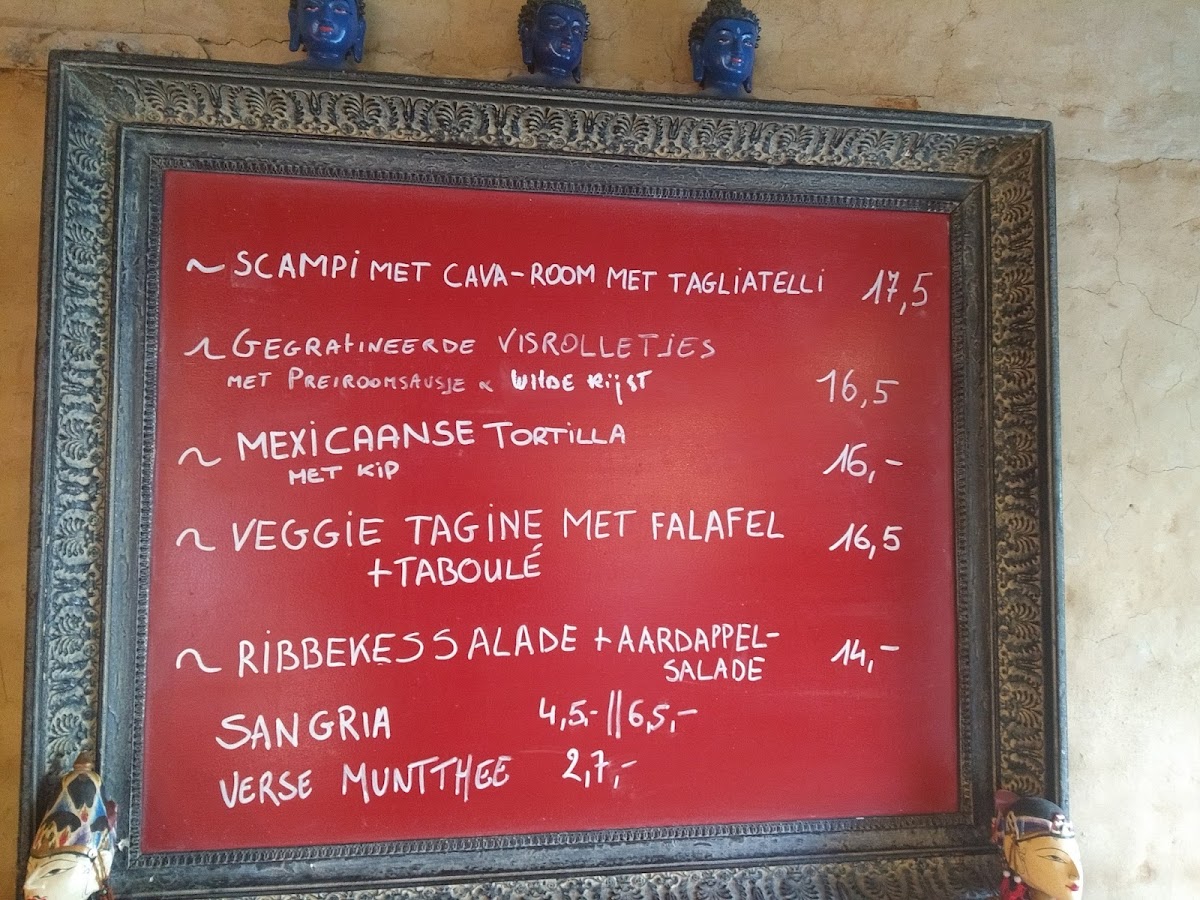 ~ SCAMPI MET CAVA-ROOM MET TAGLIATELLI 17,5
~ GEGRATINEERDE VISROLLETJES
MET PREIROOMSAUSJE & WILDE RIJST 16,5
~ MEXICAANSE TORTILLA
MET KIP 16,-
~ VEGGIE TAGINE MET FALAFEL 16,5
+TABOULÉ
~ RIBBEKES SALADE + AARDAPPEL- 14,-
SALADE
SANGRIA 4,5,- || 6,5,-
VERSE MUNTTHEE 2,7,-